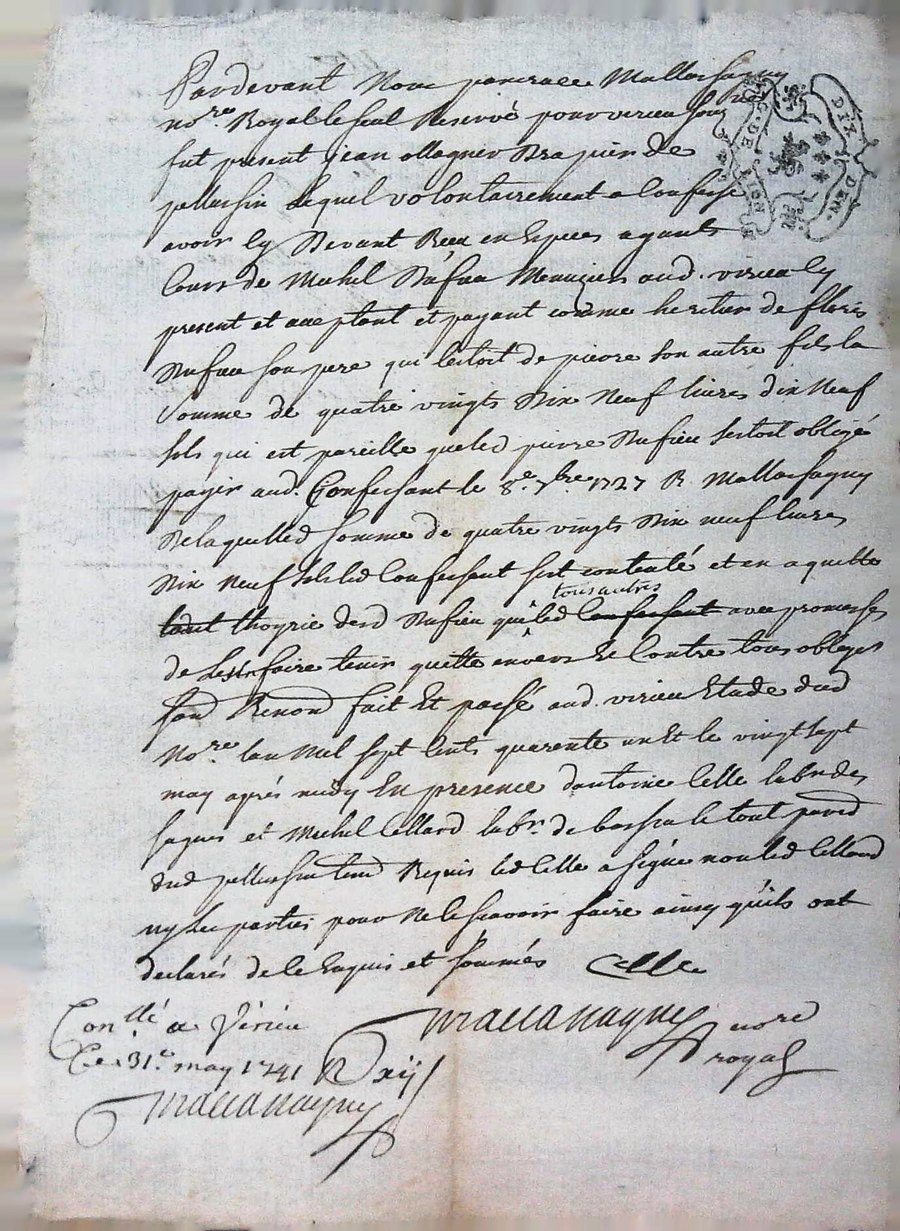 Pardevant Nous pancrace Mallassagny
no.re Royal le seul Reservé pour virieu sous
fut present jean ollagner drapier de
pellussin Lequel volontairement a Confessé
avoir cy devant Receu en Especes ayants
Cours de Michel Dufieu Menuzier aud. virieu Cy
present et acceptant et payant comme heritier de floris
Dufieu son pere qui lestoit de pierre son autre fils la
Somme de quatre vingts dix Neuf livres dix Neuf
sols qui est pareille que led pierre Dufieu sestoit obligé
payer aud. Confessant le 8e. 7bre 1727 R. Mallassagny
De laquelled somme de quatre vingts dix neuf livres
dix Neuf sols led Confessant sest contenté et en a quitté
tant lhoyrie dud Dufieu que led tous autres Confessant avec promesses
de Les en faire tenir quitte envers Et Contre tous obligeant
sand Renond fait Et passé aud. virieu Etude dud
No.re lan Mil sept Cents quarente un Et le vingt sept
may aprés midy En presence dantoine Celle labr des
fagues et Michel Cellard labr. de le tout par
dud pellussin Requis led Celle a signé non led Cellard
ny les parties pour Ne le scavoir faire ainsy quils ont
declarés de le Enquis et sommés Celle
Mallassagny nore
royal
Con.llé a Virieu
Ce 31e. may 1741 R xij s
Mallassagny
DIX DEN.